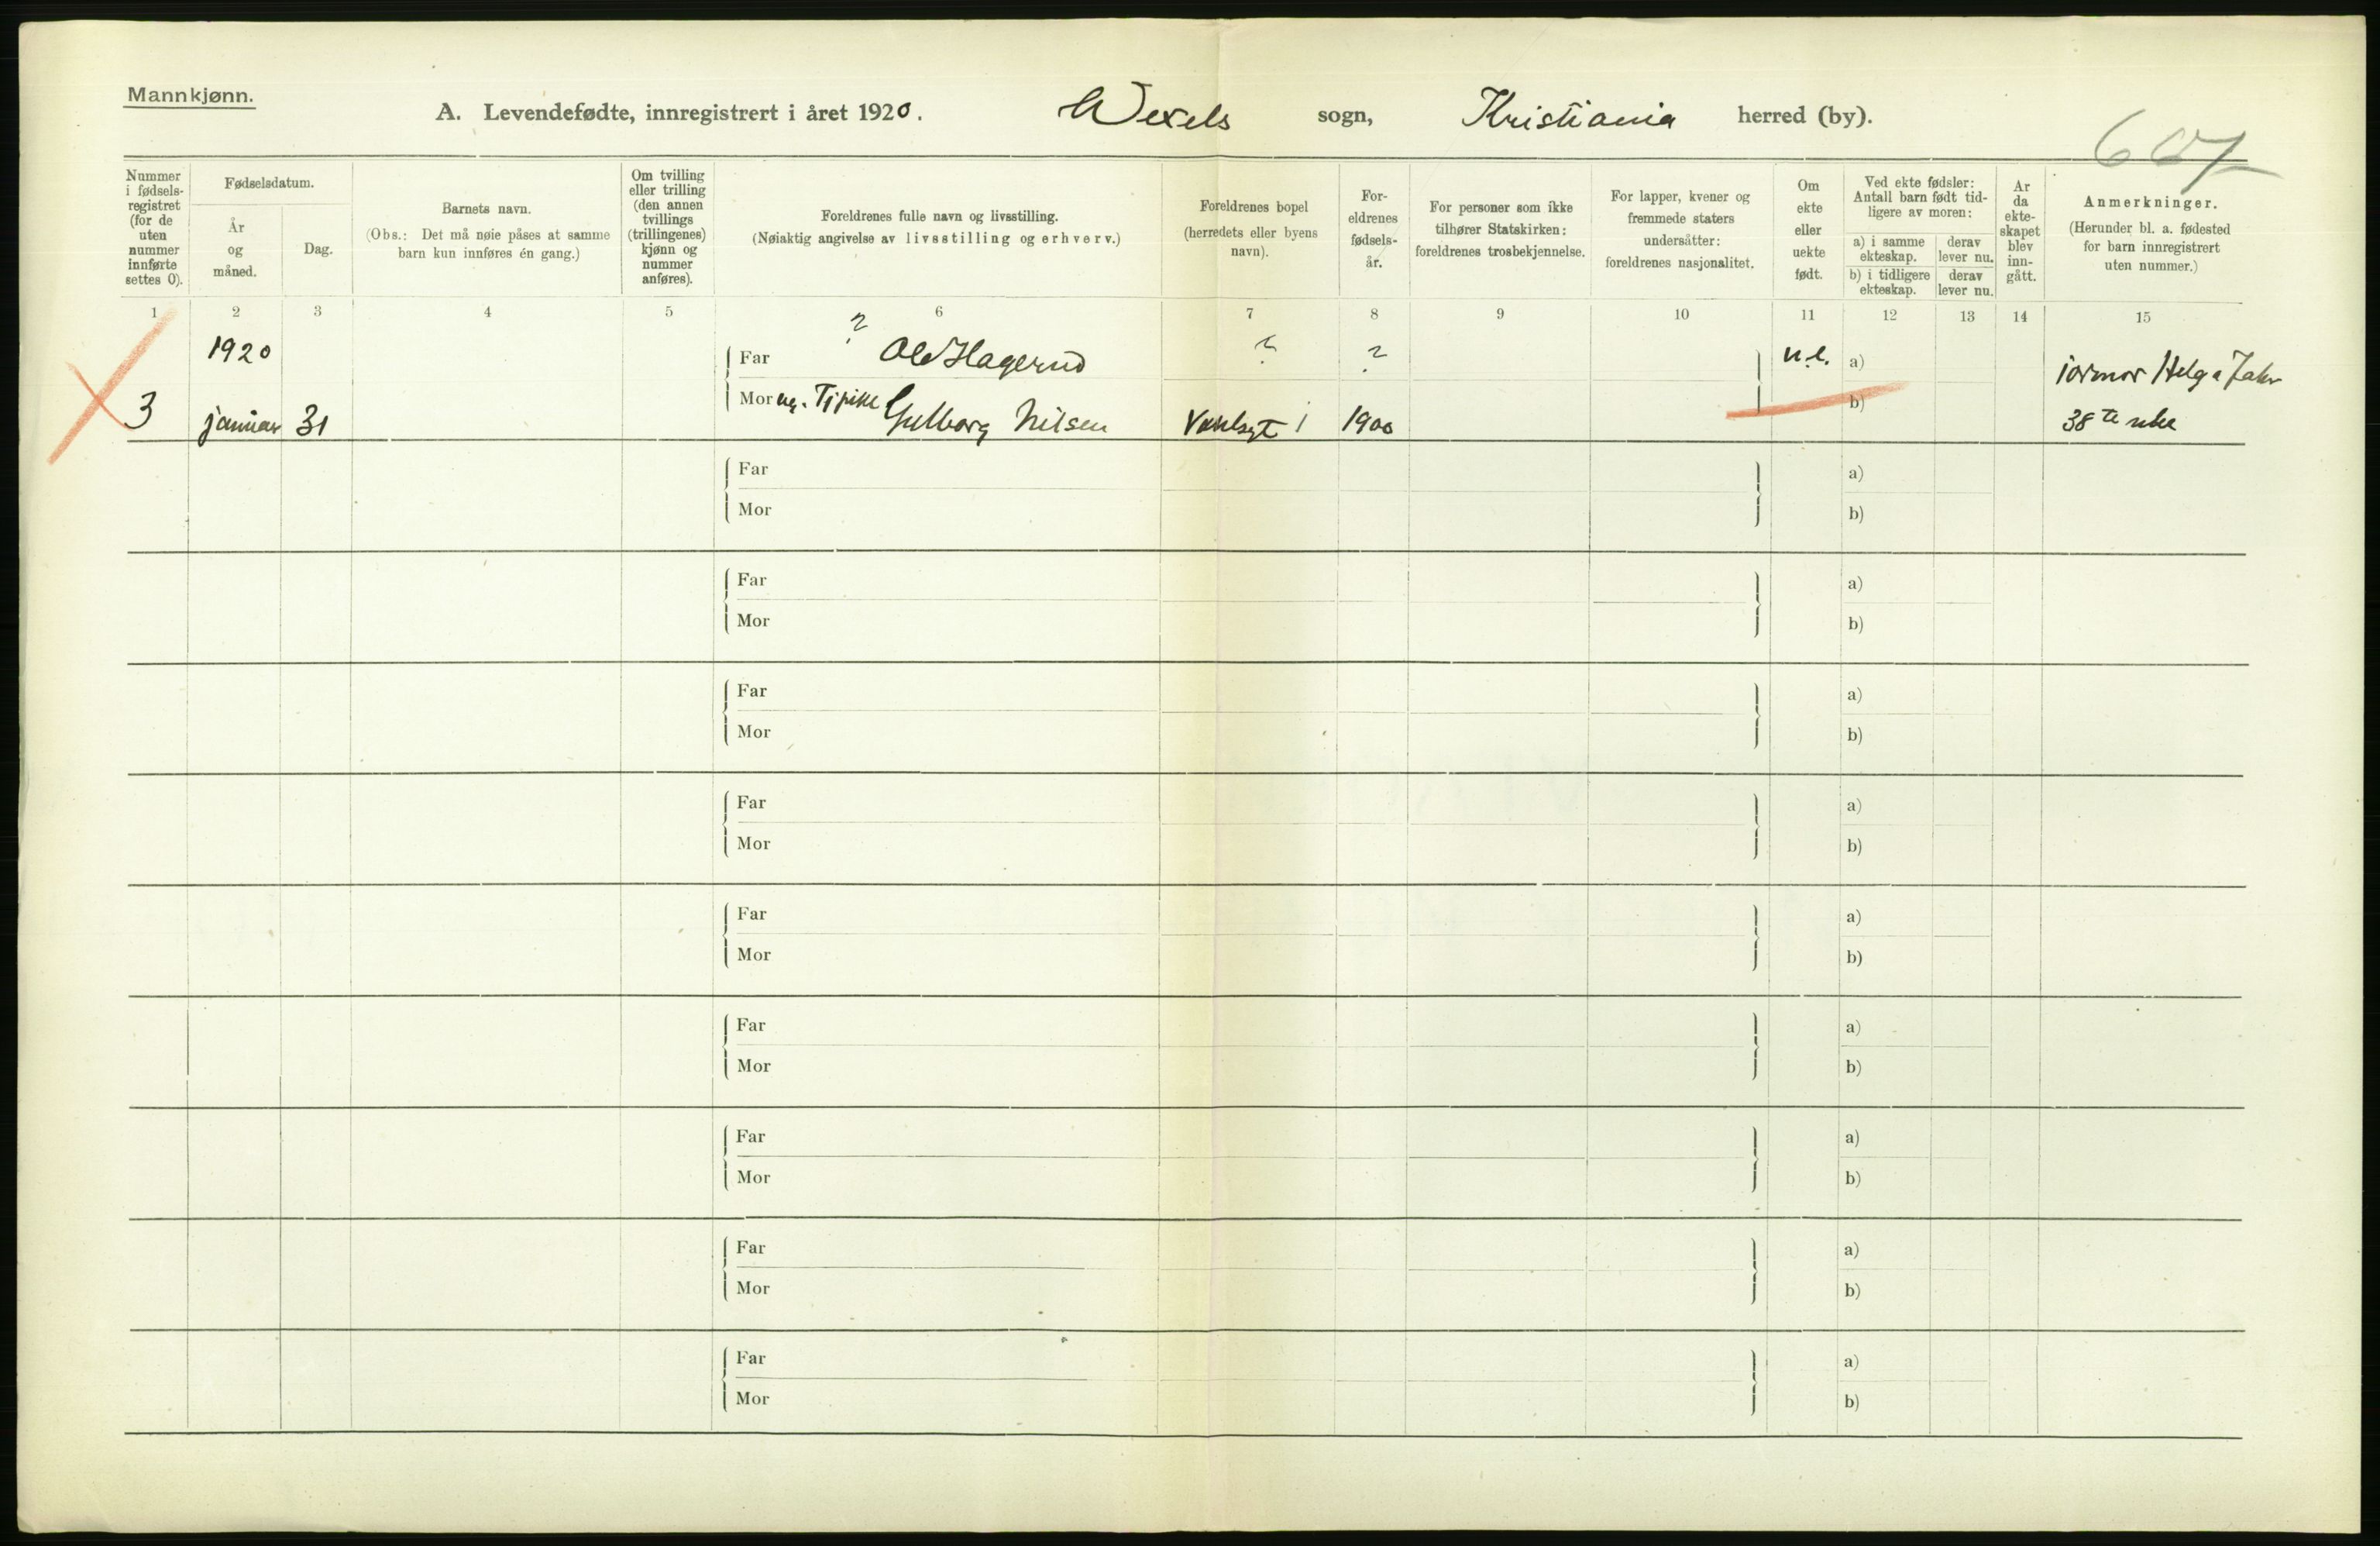 Mannkjønn.
A. Levendefødte, innregistrert i året 1920. Wexels sogn, Kristiania herred (by).
607
Nummer i fødsels-registret (for de uten nummer innførte settes 0).
Fødselsdatum.
År og måned.
Dag.
Barnets navn.
(Obs.: Det må nøie påses at samme barn kun innføres én gang.)
Om tvilling eller trilling (den annen tvillings (trillingenes) kjønn og nummer anføres).
Foreldrenes fulle navn og livsstilling.
(Nøiaktig angivelse av livsstilling og erhverv.)
Foreldrenes bopel (herredets eller byens navn).
For-eldrenes fødsels-år.
For personer som ikke tilhører Statskirken: foreldrenes trosbekjennelse.
For lapper, kvener og fremmede staters undersåtter: foreldrenes nasjonalitet.
Om ekte eller uekte født.
Ved ekte fødsler: Antall barn født tid-ligere av moren:
a) i samme ekteskap.
derav lever nu.
b) i tidligere ekteskap.
derav lever nu.
År da ekte-skapet blev inn-gått.
Anmerkninger.
(Herunder bl. a. fødested for barn innregistrert uten nummer.)
1 2 3 4 5 6 7 8 9 10 11 12 13 14 15
1920 Far ? Ole Hagerud ? ? u.e. a) jormor Helga
3 januar 31 Mor Tjpike Gulborg Nilsen 1900 b) 38te uke
Far a)
Mor b)
Far a)
Mor b)
Far a)
Mor b)
Far a)
Mor b)
Far a)
Mor b)
Far a)
Mor b)
Far a)
Mor b)
Far a)
Mor b)
Far a)
Mor b)